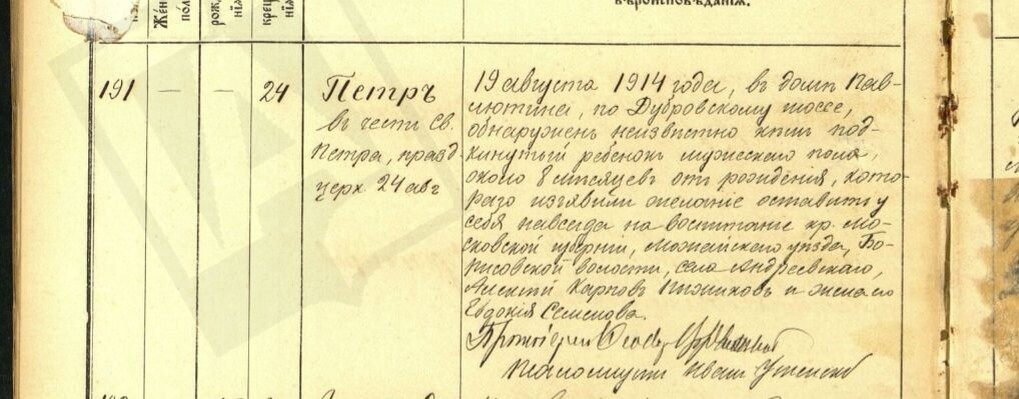 Же́н
по́л
рож
ні́я
крещ
ні́я
вѣроисповѣданія.
191 — — 24
Петръ
въ честь Св.
Петра, празд.
церк. 24 авг
19 августа 1914 года, въ домѣ Пав-
лютина, по Дубровскому шоссе,
обнаруженъ неизвѣстно кѣмъ под-
кинутый ребенокъ мужескаго пола,
около 8 мѣсяцевъ отъ рожденія, кото-
раго изъявили желаніе оставить у
себя навсегда на воспитаніе кр. Мо-
сковской губерніи, Можайскаго уѣзда, Бо-
рисовской волости, села Андреевскаго,
Алексѣй Карповъ и жена его
Евдокія Семенова.
Протоіерей
Псаломщикъ Иванъ